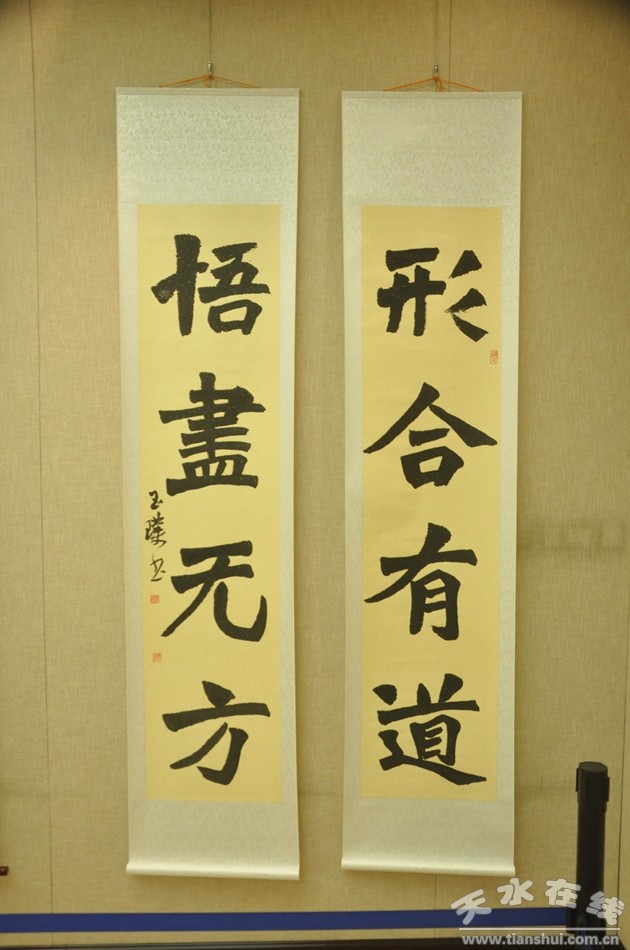 形合有道
悟盡无方
玉璞书
天水在线
www.tianshui.com.cn